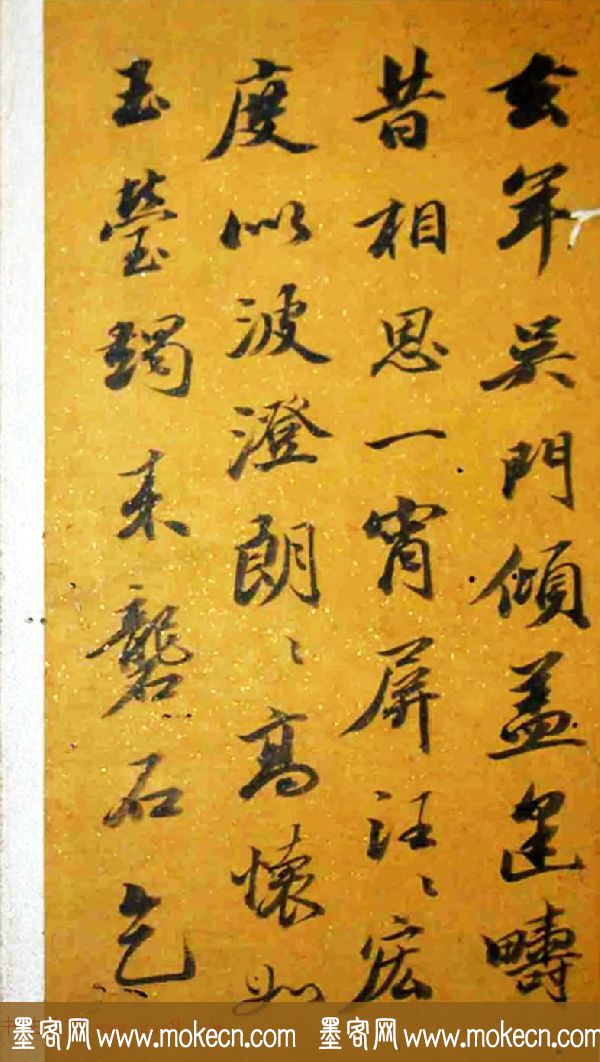 去年吳門傾蓋逢疇
昔相思一宵屏汪〻宏
度似波澄朗〻高懷如
玉瑩来礱石乞
墨客网 www.mokecn.com 墨客网 www.mokecn.com